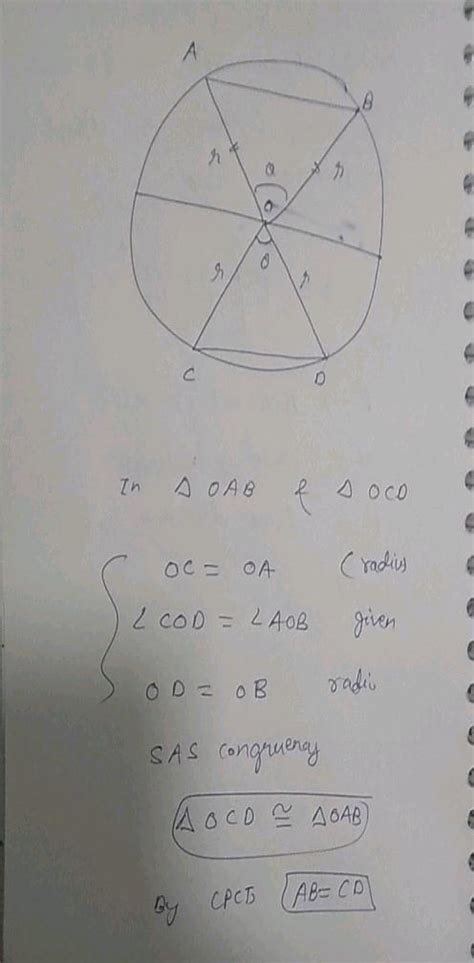 A
B
r
r
θ
O
θ
r
r
C
D
In △ OAB & △ OCD
OC = OA (radius
∠ COD = ∠ AOB given
OD = OB radii
SAS Congruency
△ OCD ≅ △OAB
By CPCT AB = CD